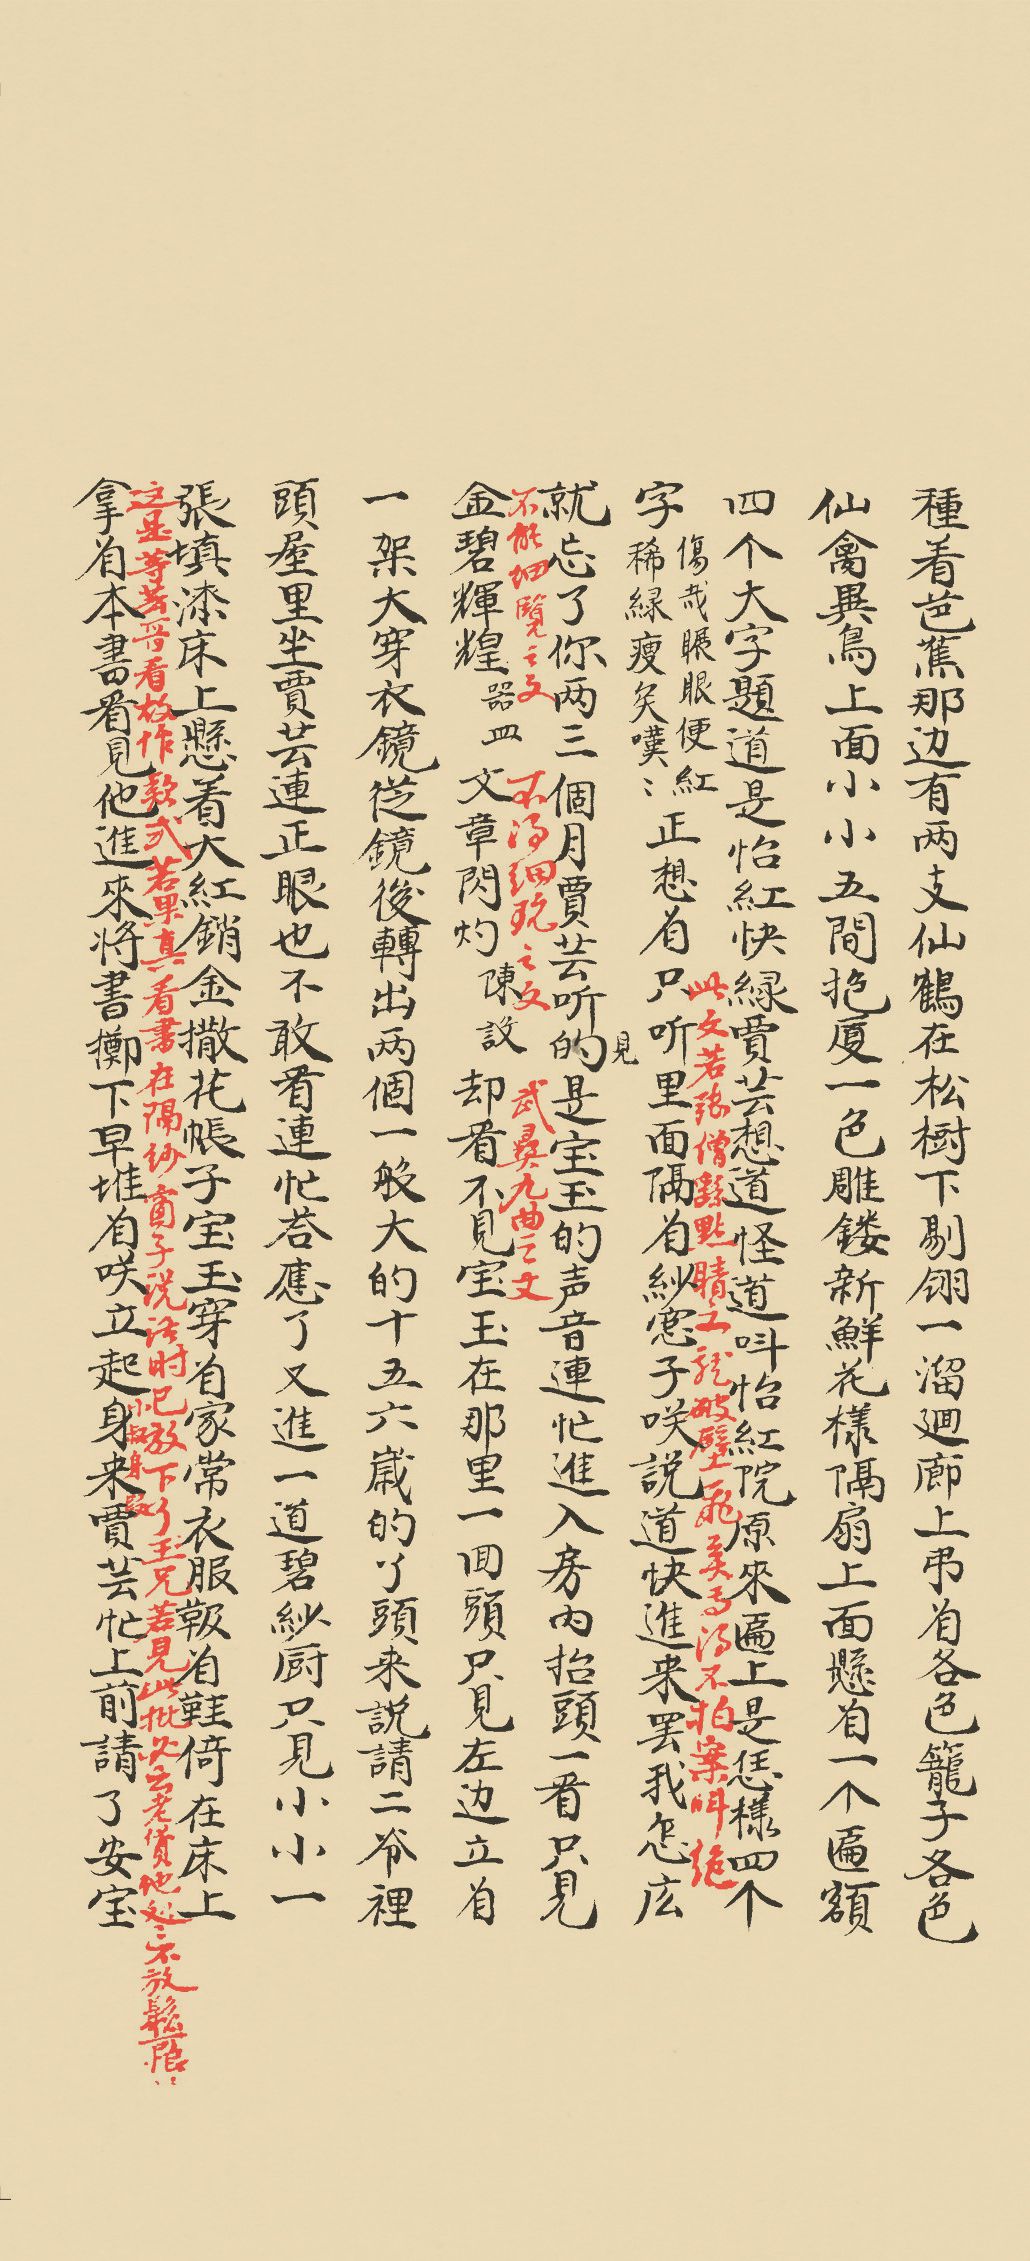 種着芭蕉那边有两支仙鶴在松樹下剔翎一溜廻廊上弔着各色籠子各色
仙禽異鳥上面小小五間抱厦一色雕鏤新鮮花樣隔扇上面懸着一个匾額
四个大字題道是怡紅快綠賈芸想道怪道呌怡紅院原來匾上是恁樣四个
字
傷哉眼便紅
稀綠瘦矣嘆〻
正想着只听里面隔着紗窓子咲說道快進来罢我怎庅
此文若張僧繇點睛之龍破壁飛矣焉得不拍案呌絶
見
就忘了你两三個月賈芸听的是宝玉的声音連忙進入房內抬頭一看只見
不能細覽之文
不得細玩之文
武彞九曲之文
金碧輝煌
器皿
文章閃灼
陳設
却看不見宝玉在那里一回頭只見左边立着
一架大穿衣鏡從鏡後轉出两個一般大的十五六歲的丫頭来說請二爷裡
頭屋里坐賈芸連正眼也不敢看連忙荅應了又進一道碧紗厨只見小小一
張填漆床上懸着大紅銷金撒花帳子宝玉穿着家常衣服靸着鞋倚在床上
这是等芸哥看故作款式若果真看書在隔紗窗子説話时已放下了玉兄若見此批必云老貨他处〻不放鬆
拿着本書看見他進來將書擲下早堆着咲立起身来賈芸忙上前請了安宝
小叔身段